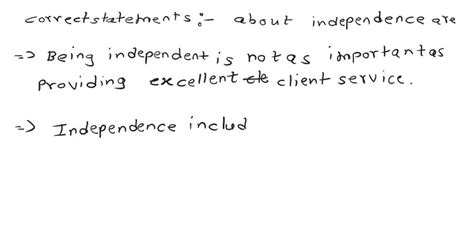 correct statements:- about independence are
=> Being independent is not as important as
providing excellent client service.
=> Independence includ